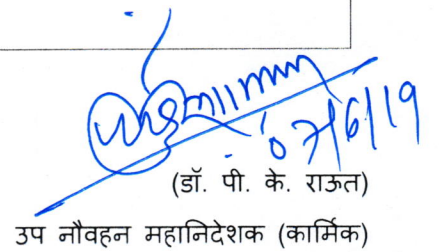 07/6/19
(डॉ. पी. के. राऊत)
उप नौवहन महानिदेशक (कार्मिक)